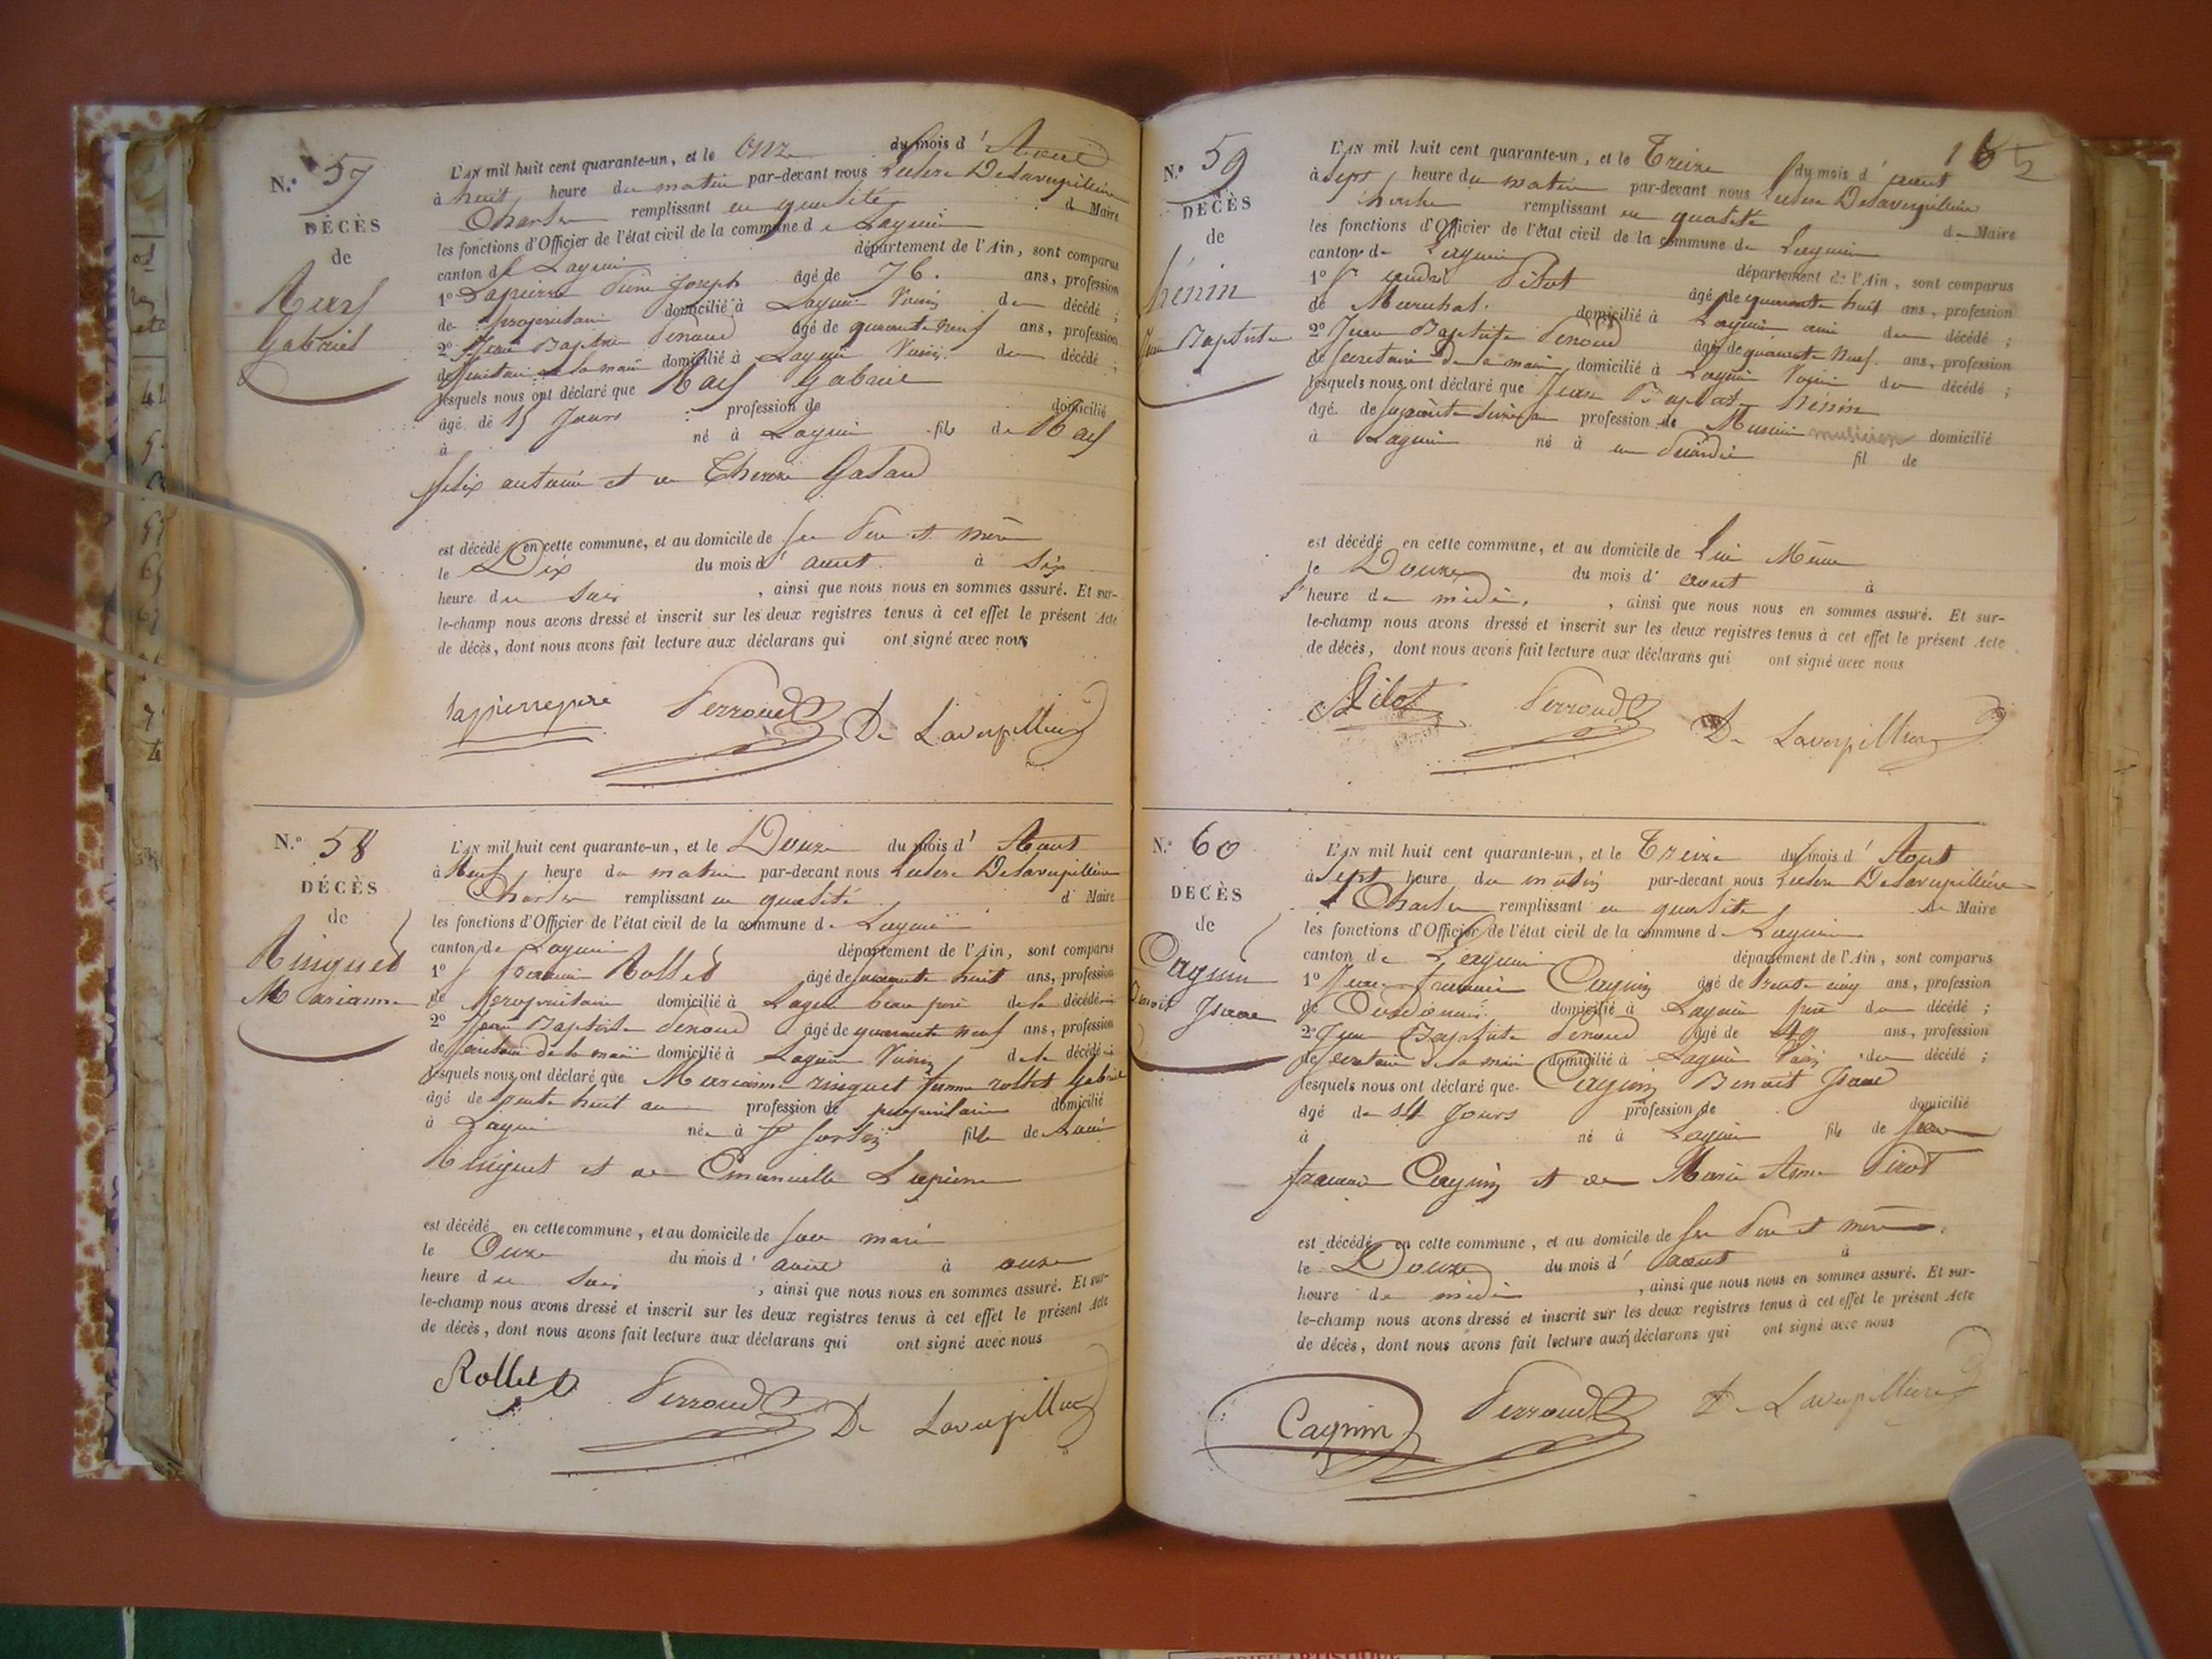 N.° 57
DÉCÈS
de
Gabriel
L'AN mil huit cent quarante-un, et le onze du mois d' Aout
à huit heure du matin par-devant nous
Charles remplissant en qualité d Maire
les fonctions d'Officier de l'état civil de la commune de Lagnieu
canton de Lagnieu département de l'Ain, sont comparus
1° Lapierre Pierre Joseph âgé de 76. ans, profession
de propriétaire domicilié à Lagnieu Voisin du décédé ;
2° Jean Baptiste Perroud âgé de quarante neuf ans, profession
de secretaire de la mairie domicilié à Lagnieu Voisin du décédé ;
lesquels nous ont déclaré que Gabriel
âgé de 15 Jours profession de domicilié
à né à Lagnieu fils de
felix antoine et de Therese
est décédé en cette commune, et au domicile de ses Pere et mere
le Dix du mois d' aout à six
heure du soir , ainsi que nous nous en sommes assuré. Et sur-
le-champ nous avons dressé et inscrit sur les deux registres tenus à cet effet le présent Acte
de décès, dont nous avons fait lecture aux déclarans qui ont signé avec nous
lapierre pierre Perroud De Laverpilliere
N.° 58
DÉCÈS
de
Ringuet
Marianne
L'AN mil huit cent quarante-un, et le Douze du mois d' Aout
à Neuf heure du matin par-devant nous
Charles remplissant en qualité d Maire
les fonctions d'Officier de l'état civil de la commune de Lagnieu
canton de Lagnieu département de l'Ain, sont comparus
1° Rollet âgé de huit ans, profession
de propriétaire domicilié à Lagnieu beau pere de la décédée
2° Jean Baptiste Perroud âgé de quarante neuf ans, profession
de secretaire de la mairie domicilié à Lagnieu Voisin de la décédée
lesquels nous ont déclaré que Marianne ringuet femme rollet Gabriel
âgé de trente huit ans profession de propriétaire domicilié
à Lagnieu née à St Sorlin fille de
Ringuet et de Emanuelle Lapierre
est décédé en cette commune, et au domicile de son mari
le Onze du mois d' aout à onze
heure du soir , ainsi que nous nous en sommes assuré. Et sur-
le-champ nous avons dressé et inscrit sur les deux registres tenus à cet effet le présent Acte
de décès, dont nous avons fait lecture aux déclarans qui ont signé avec nous
Rollet Perroud De Laverpilliere
N.° 59
DÉCÈS
de
hénin
Jean Baptiste
L'AN mil huit cent quarante-un, et le Treize du mois d' aout
à sept heure du matin par-devant nous
Charles remplissant en qualité de Maire
les fonctions d'Officier de l'état civil de la commune de Lagnieu
canton de Lagnieu département de l'Ain, sont comparus
1° Pilot âgé de quarante huit ans, profession
de Marechal. domicilié à Lagnieu ami du décédé ;
2° Jean Baptiste Perroud âgé de quarante neuf ans, profession
de secretaire de la mairie domicilié à Lagnieu Voisin du décédé ;
lesquels nous ont déclaré que Jean Baptiste hénin
âgé de profession de Musicien musicien domicilié
à Lagnieu né à en Picardie fil de
est décédé en cette commune, et au domicile de Lui Même
le Douze du mois d' aout à
heure de midi. , ainsi que nous nous en sommes assuré. Et sur-
le-champ nous avons dressé et inscrit sur les deux registres tenus à cet effet le présent Acte
de décès, dont nous avons fait lecture aux déclarans qui ont signé avec nous
Pilot Perroud De Laverpilliere
N.° 60
DÉCÈS
de
Cagnin
Benoit Isaac
L'AN mil huit cent quarante-un, et le Treize du mois d' Aout
à sept heure du matin par-devant nous
Charles remplissant en qualité de Maire
les fonctions d'Officier de l'état civil de la commune de Lagnieu
canton de Lagnieu département de l'Ain, sont comparus
1° Jean francois Cagnin âgé de trente cinq ans, profession
de Cordonnier domicilié à Lagnieu pere du décédé ;
2° Jean Baptiste Perroud âgé de 49 ans, profession
de secretaire de la mairie domicilié à Lagnieu Voisin du décédé ;
lesquels nous ont déclaré que Cagnin Benoit Isaac
âgé de 14 Jours profession de domicilié
à né à Lagnieu fils de Jean
francois Cagnin et de Marie Anne Pirot
est décédé en cette commune, et au domicile de ses Pere et mere
le Douze du mois d' aout à
heure de midi , ainsi que nous nous en sommes assuré. Et sur-
le-champ nous avons dressé et inscrit sur les deux registres tenus à cet effet le présent Acte
de décès, dont nous avons fait lecture aux déclarans qui ont signé avec nous
Cagnin Perroud De Laverpilliere